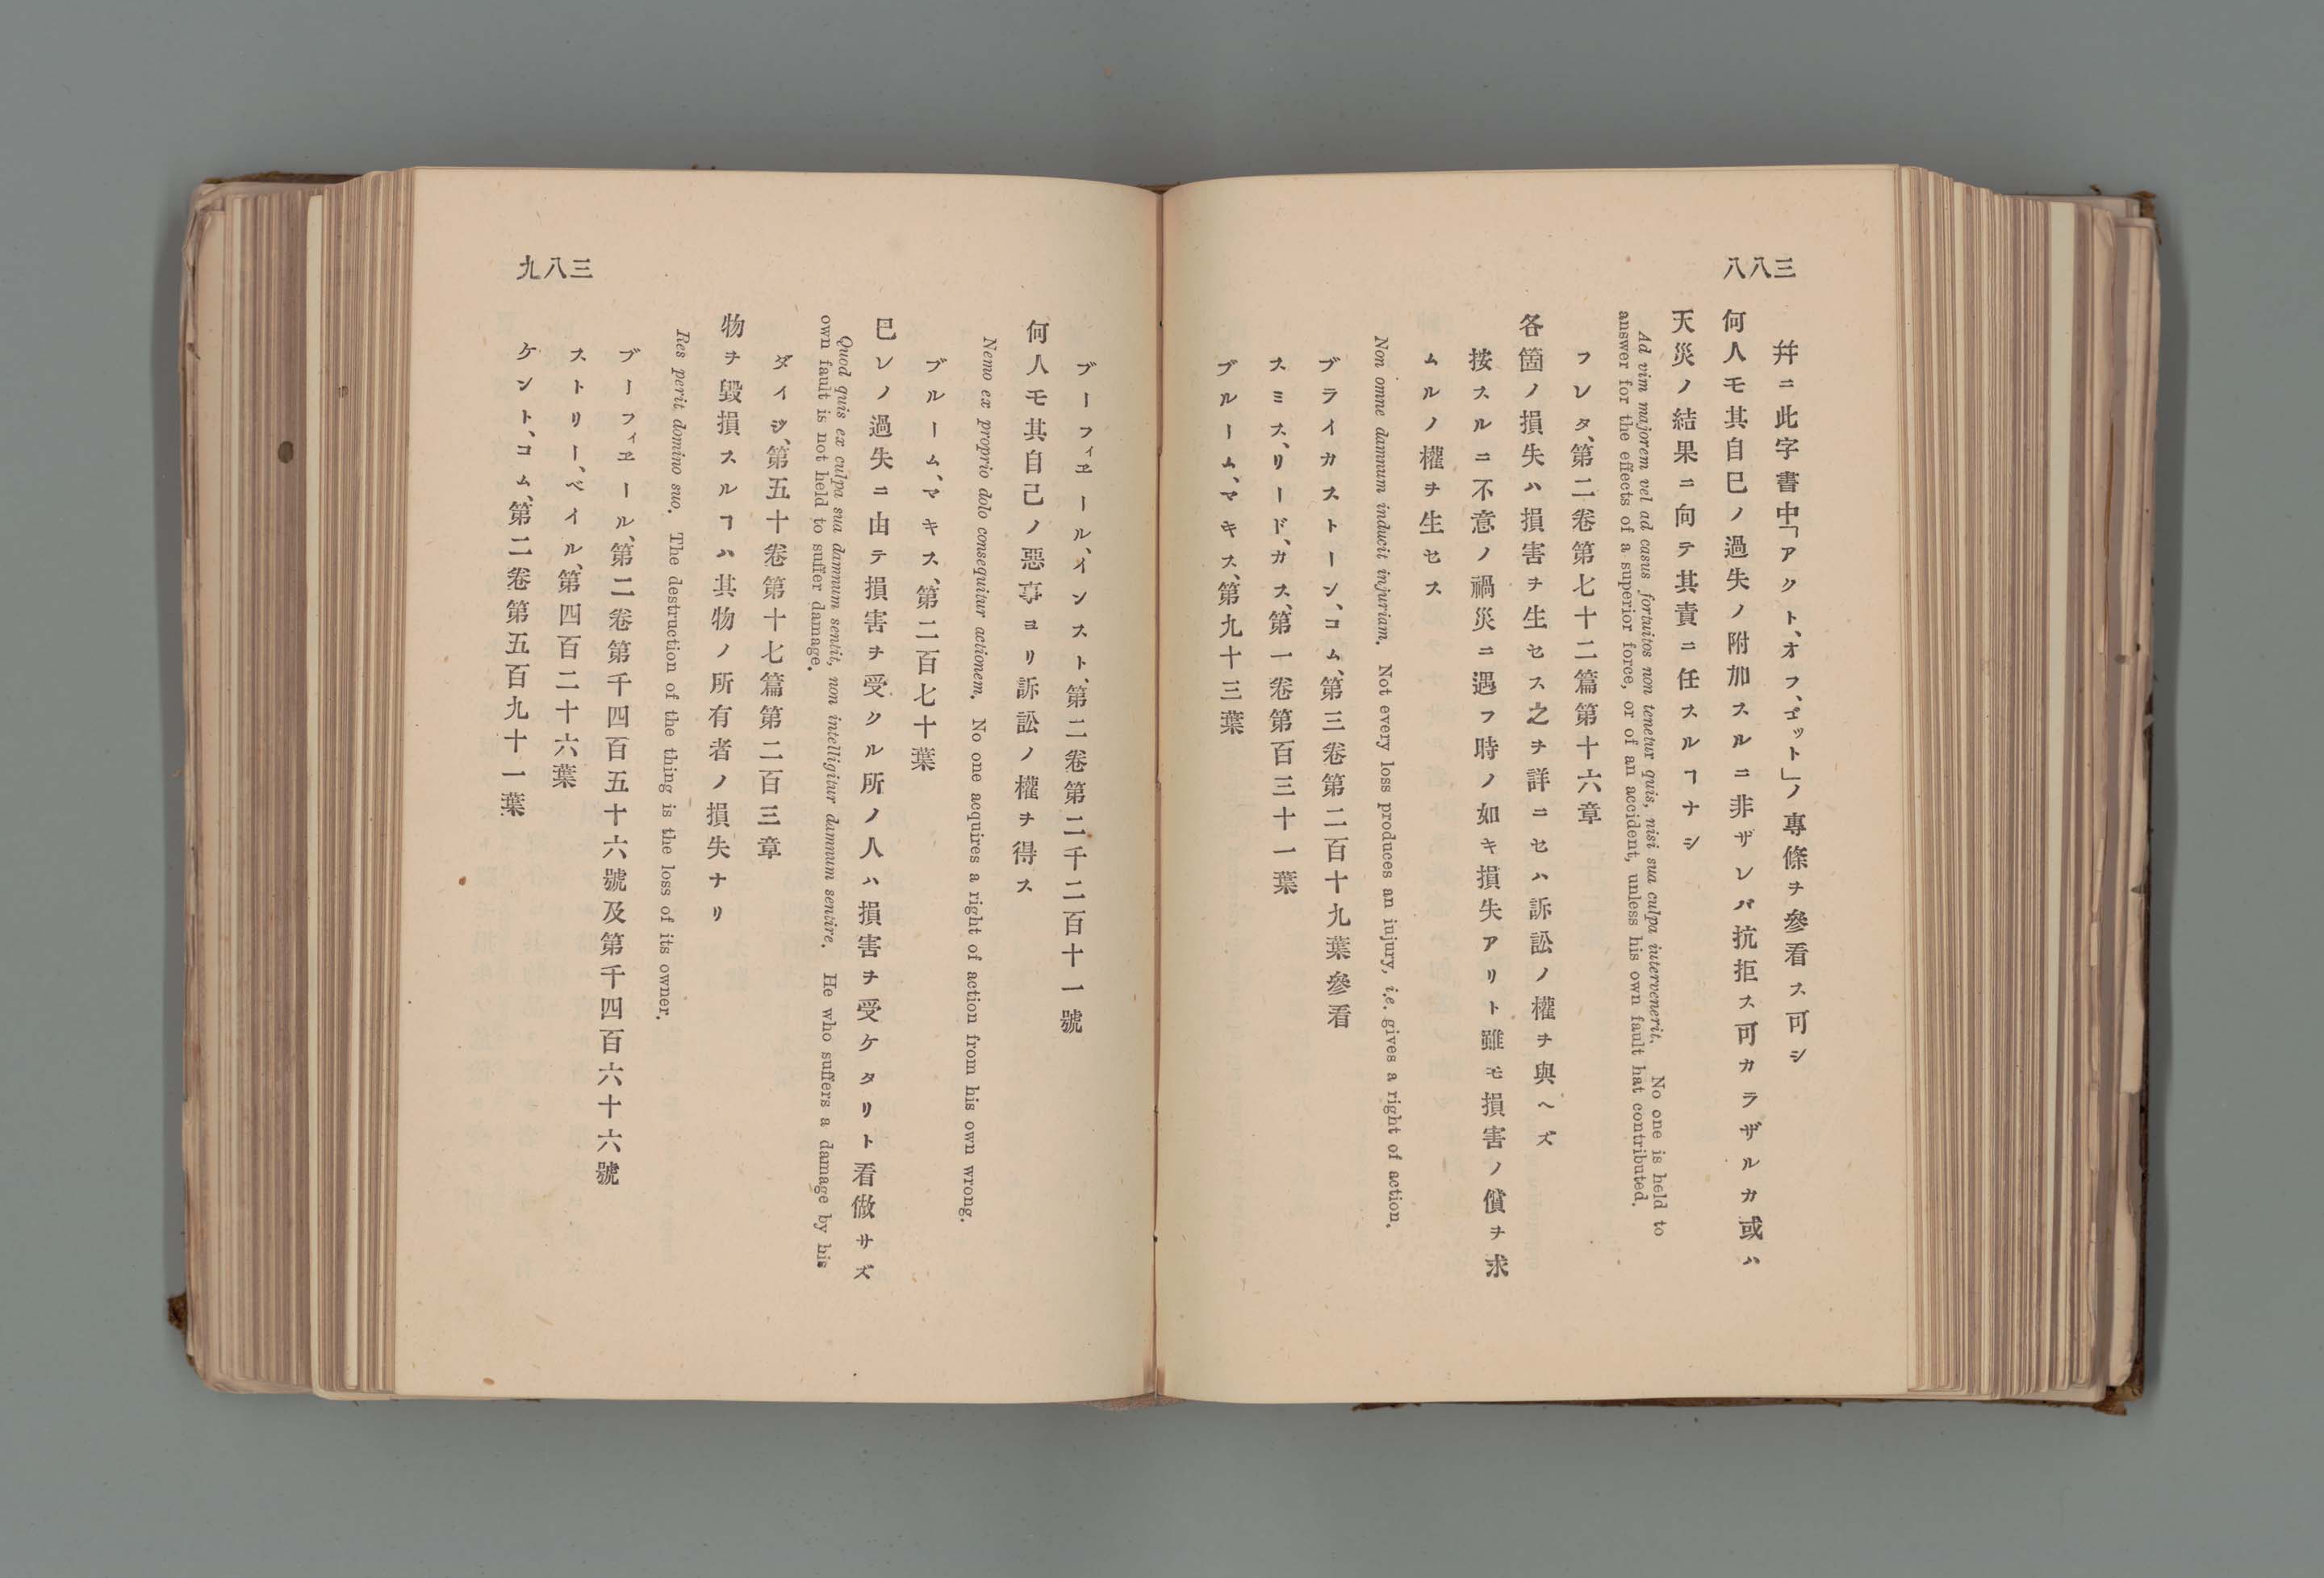 三八八
幷ニ此字書中「アクト、オフ、ゴット」ノ專條ヲ參看ス可シ
何人モ其自巳ノ過失ノ附加スルニ非ザレバ抗拒ス可カラザルカ或ハ
天災ノ結果ニ向テ其責ニ任スルヿナシ
Ad vim majorem vel ad casus fortuitos non tenetur quis, nisi sua culpa intervenerit. No one is held to
answer for the effects of a superior force, or of an accident, unless his own fault hat contributed.
フレタ、第二卷第七十二篇第十六章
各箇ノ損失ハ損害ヲ生セス之ヲ詳ニセハ訴訟ノ權ヲ與ヘズ
按スルニ不意ノ禍災ニ遇フ時ノ如キ損失アリト雖モ損害ノ償ヲ求
ムルノ權ヲ生セス
Non omne damnum inducit injuriam. Not every loss produces an iujury, i.e. gives a right of action.
ブライカストーン、コム、第三卷第二百十九葉參看
スミス、リード、カス、第一卷第百三十一葉
ブルーム、マキス、第九十三葉
三八九
ブーフィヱール、インスト、第二卷第二千二百十一號
何人モ其自己ノ惡事ヨリ訴訟ノ權ヲ得ス
Nemo ex proprio dolo consequitur actionem. No one acquires a right of action from his own wrong.
ブルーム、マキス、第二百七十葉
巳レノ過失ニ由テ損害ヲ受クル所ノ人ハ損害ヲ受ケタリト看做サズ
Quod quis ex culpa sua damnum sentit, non intelligitur damnum sentire. He who suffers a damage by his
own fault is not held to suffer damage.
ダイジ、第五十卷第十七篇第二百三章
物ヲ毀損スルヿハ其物ノ所有者ノ損失ナリ
Res perit domino suo. The destruction of the thing is the loss of its owner.
ブーフィヱール、第二卷第千四百五十六號及第千四百六十六號
ストリー、ベイル、第四百二十六葉
ケント、コム、第二卷第五百九十一葉